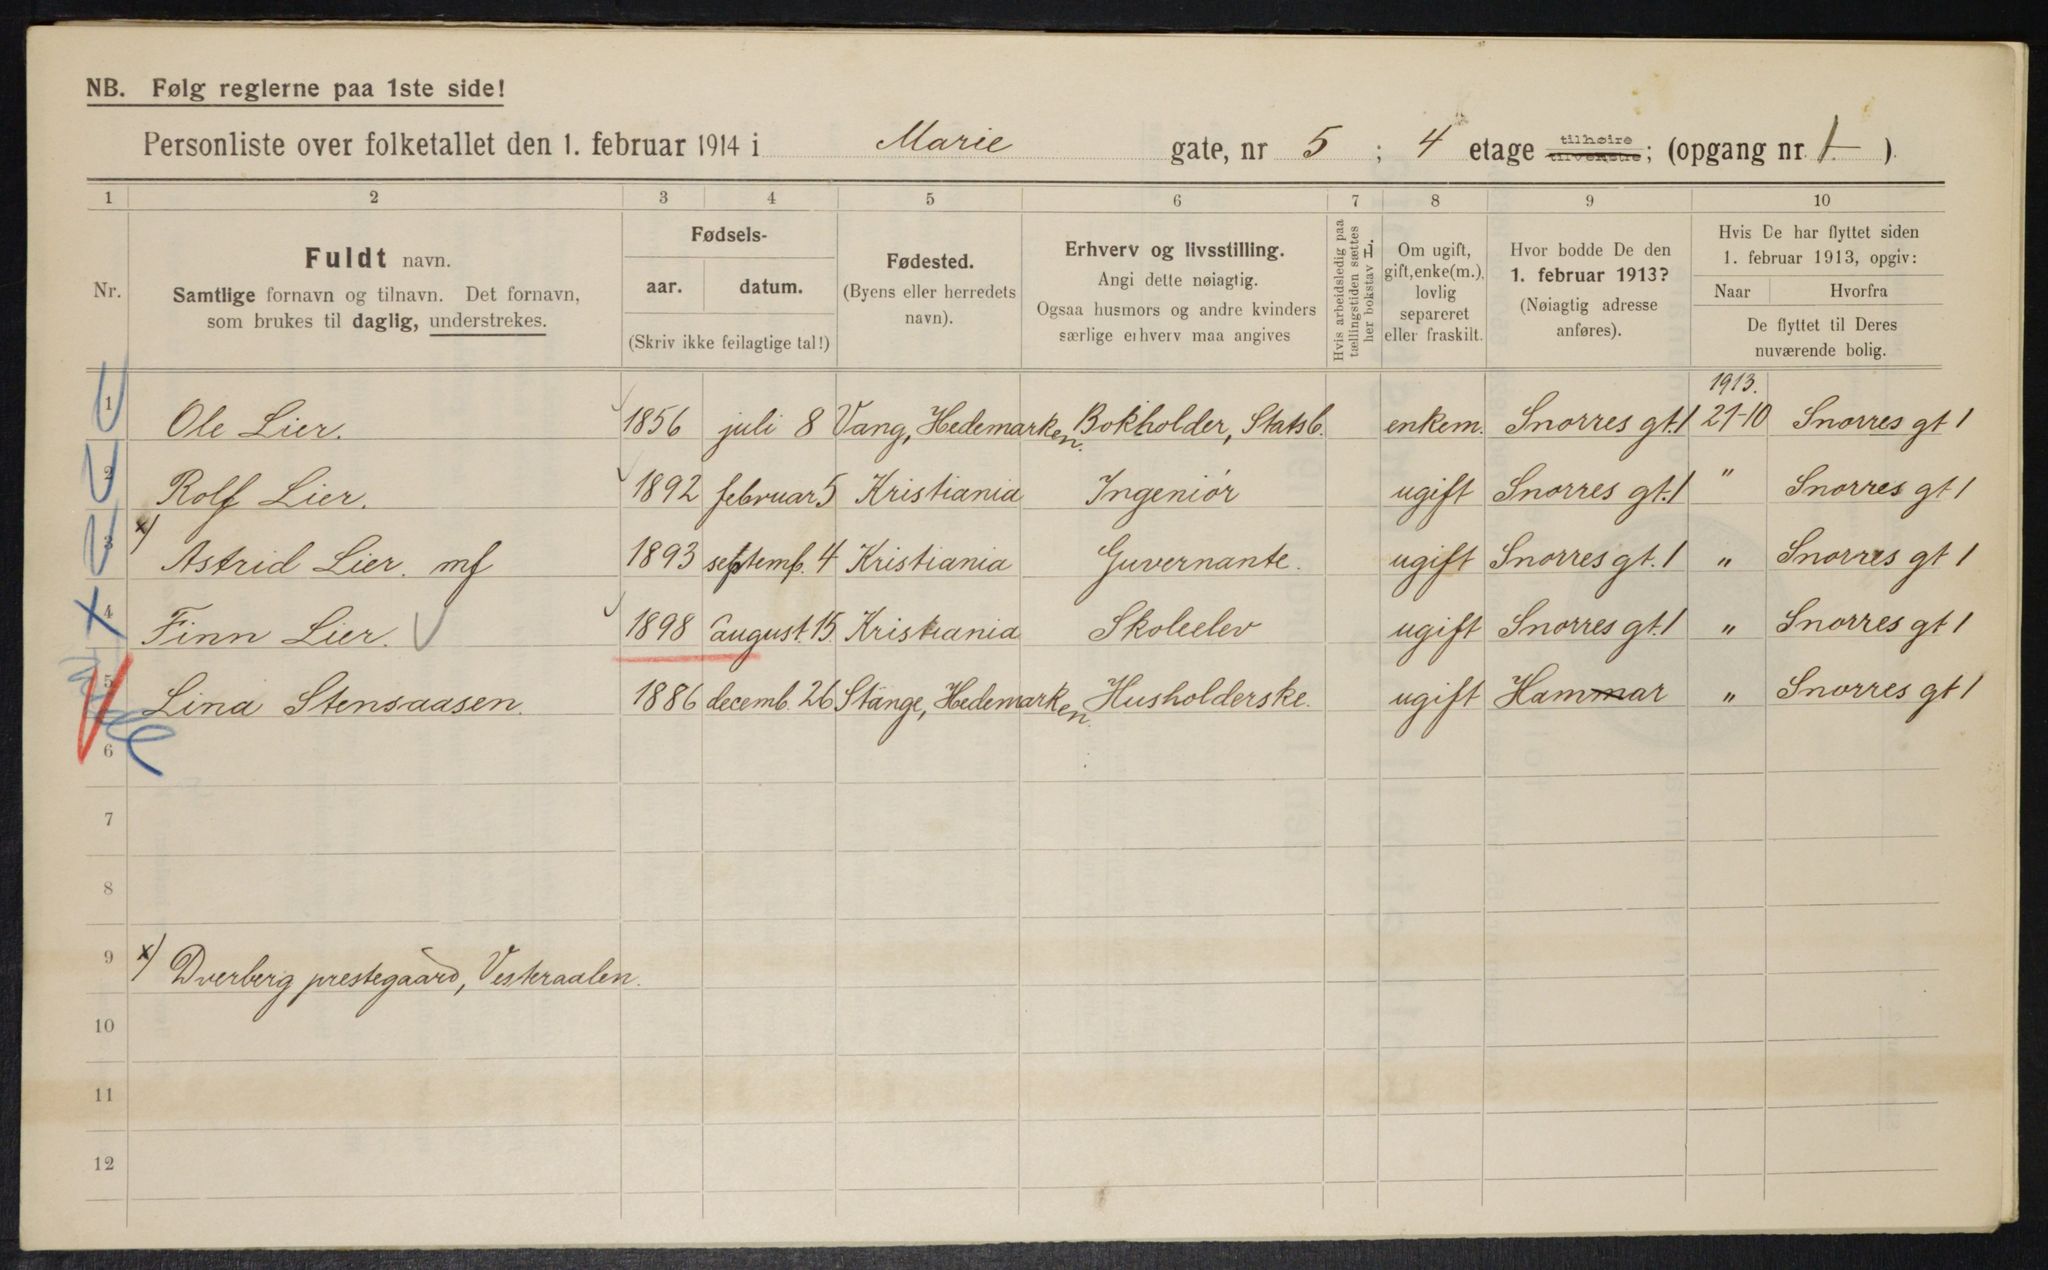 NB. Følg reglerne paa 1ste side!
Personliste over folketallet den 1. februar 1914 i Marie gate, nr 5 ; 4 etage tilhøire tilvenstre; (opgang nr. 1 ).
1 2 3 4 5 6 7 8 9 10
Nr.
Fuldt navn.
Samtlige fornavn og tilnavn. Det fornavn,
som brukes til daglig, understrekes.
Fødsels-
aar. datum.
(Skriv ikke feilagtige tal!)
Fødested.
(Byens eller herredets
navn).
Erhverv og livsstilling.
Angi dette nøiagtig.
Ogsaa husmors og andre kvinders
særlige erhverv maa angives
Hvis arbeidsledig paa
tællingstiden sættes
her bokstav L.
Om ugift,
gift, enke(m.),
lovlig
separeret
eller fraskilt.
Hvor bodde De den
1. februar 1913?
(Nøiagtig adresse
anføres).
Hvis De har flyttet siden
1. februar 1913, opgiv:
Naar Hvorfra
De flyttet til Deres
nuværende bolig.
1913.
1 Ole Lier. 1856 juli 8 Vang, Hedemarken. Bokholder, Statsb. enkem. Snorres gt. 1 21-10 Snorres gt 1
2 Rolf Lier. 1892 februar 5 Kristiania Ingeniør ugift Snorres gt. 1 " Snorres gt 1
3 x) Astrid Lier. mf 1893 septemb. 4 Kristiania Guvernante. ugift Snorres gt. 1 " Snorres gt 1
4 Finn Lier. 1898 august 15. Kristiania Skoleelev ugift Snorres gt. 1 " Snorres gt 1
5 Lina Stensaasen. 1886 decemb. 26 Stange, Hedemarken. Husholderske. ugift Hammar " Snorres gt 1
6
7
8
9 x) Dverberg prestegaard, Vesteraalen.
10
11
12